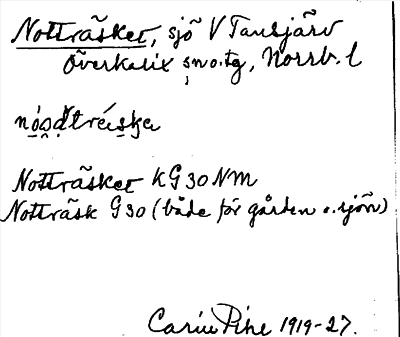 Notträsket, sjö V Tansjärv
Överkalix sn o. tg, Norrb. l
Notträsket KG 30 NM
Notträsk G 30 (både för gården o. sjön)
Carin Pihl 1919-27.